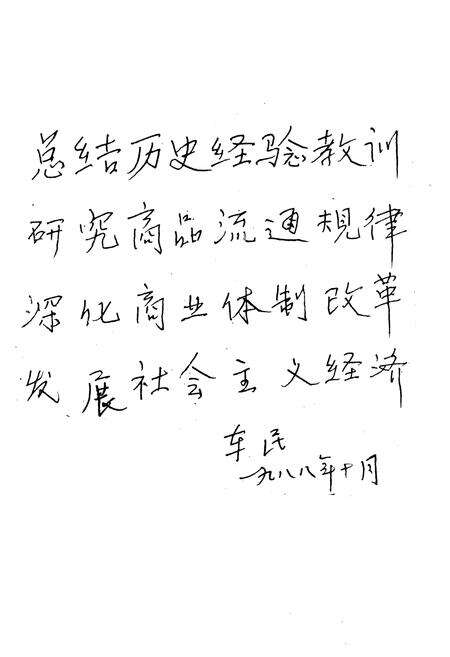 总结历史经验教训
研究商品流通规律
深化商业体制改革
发展社会主义经济
车民
一九八八年十月